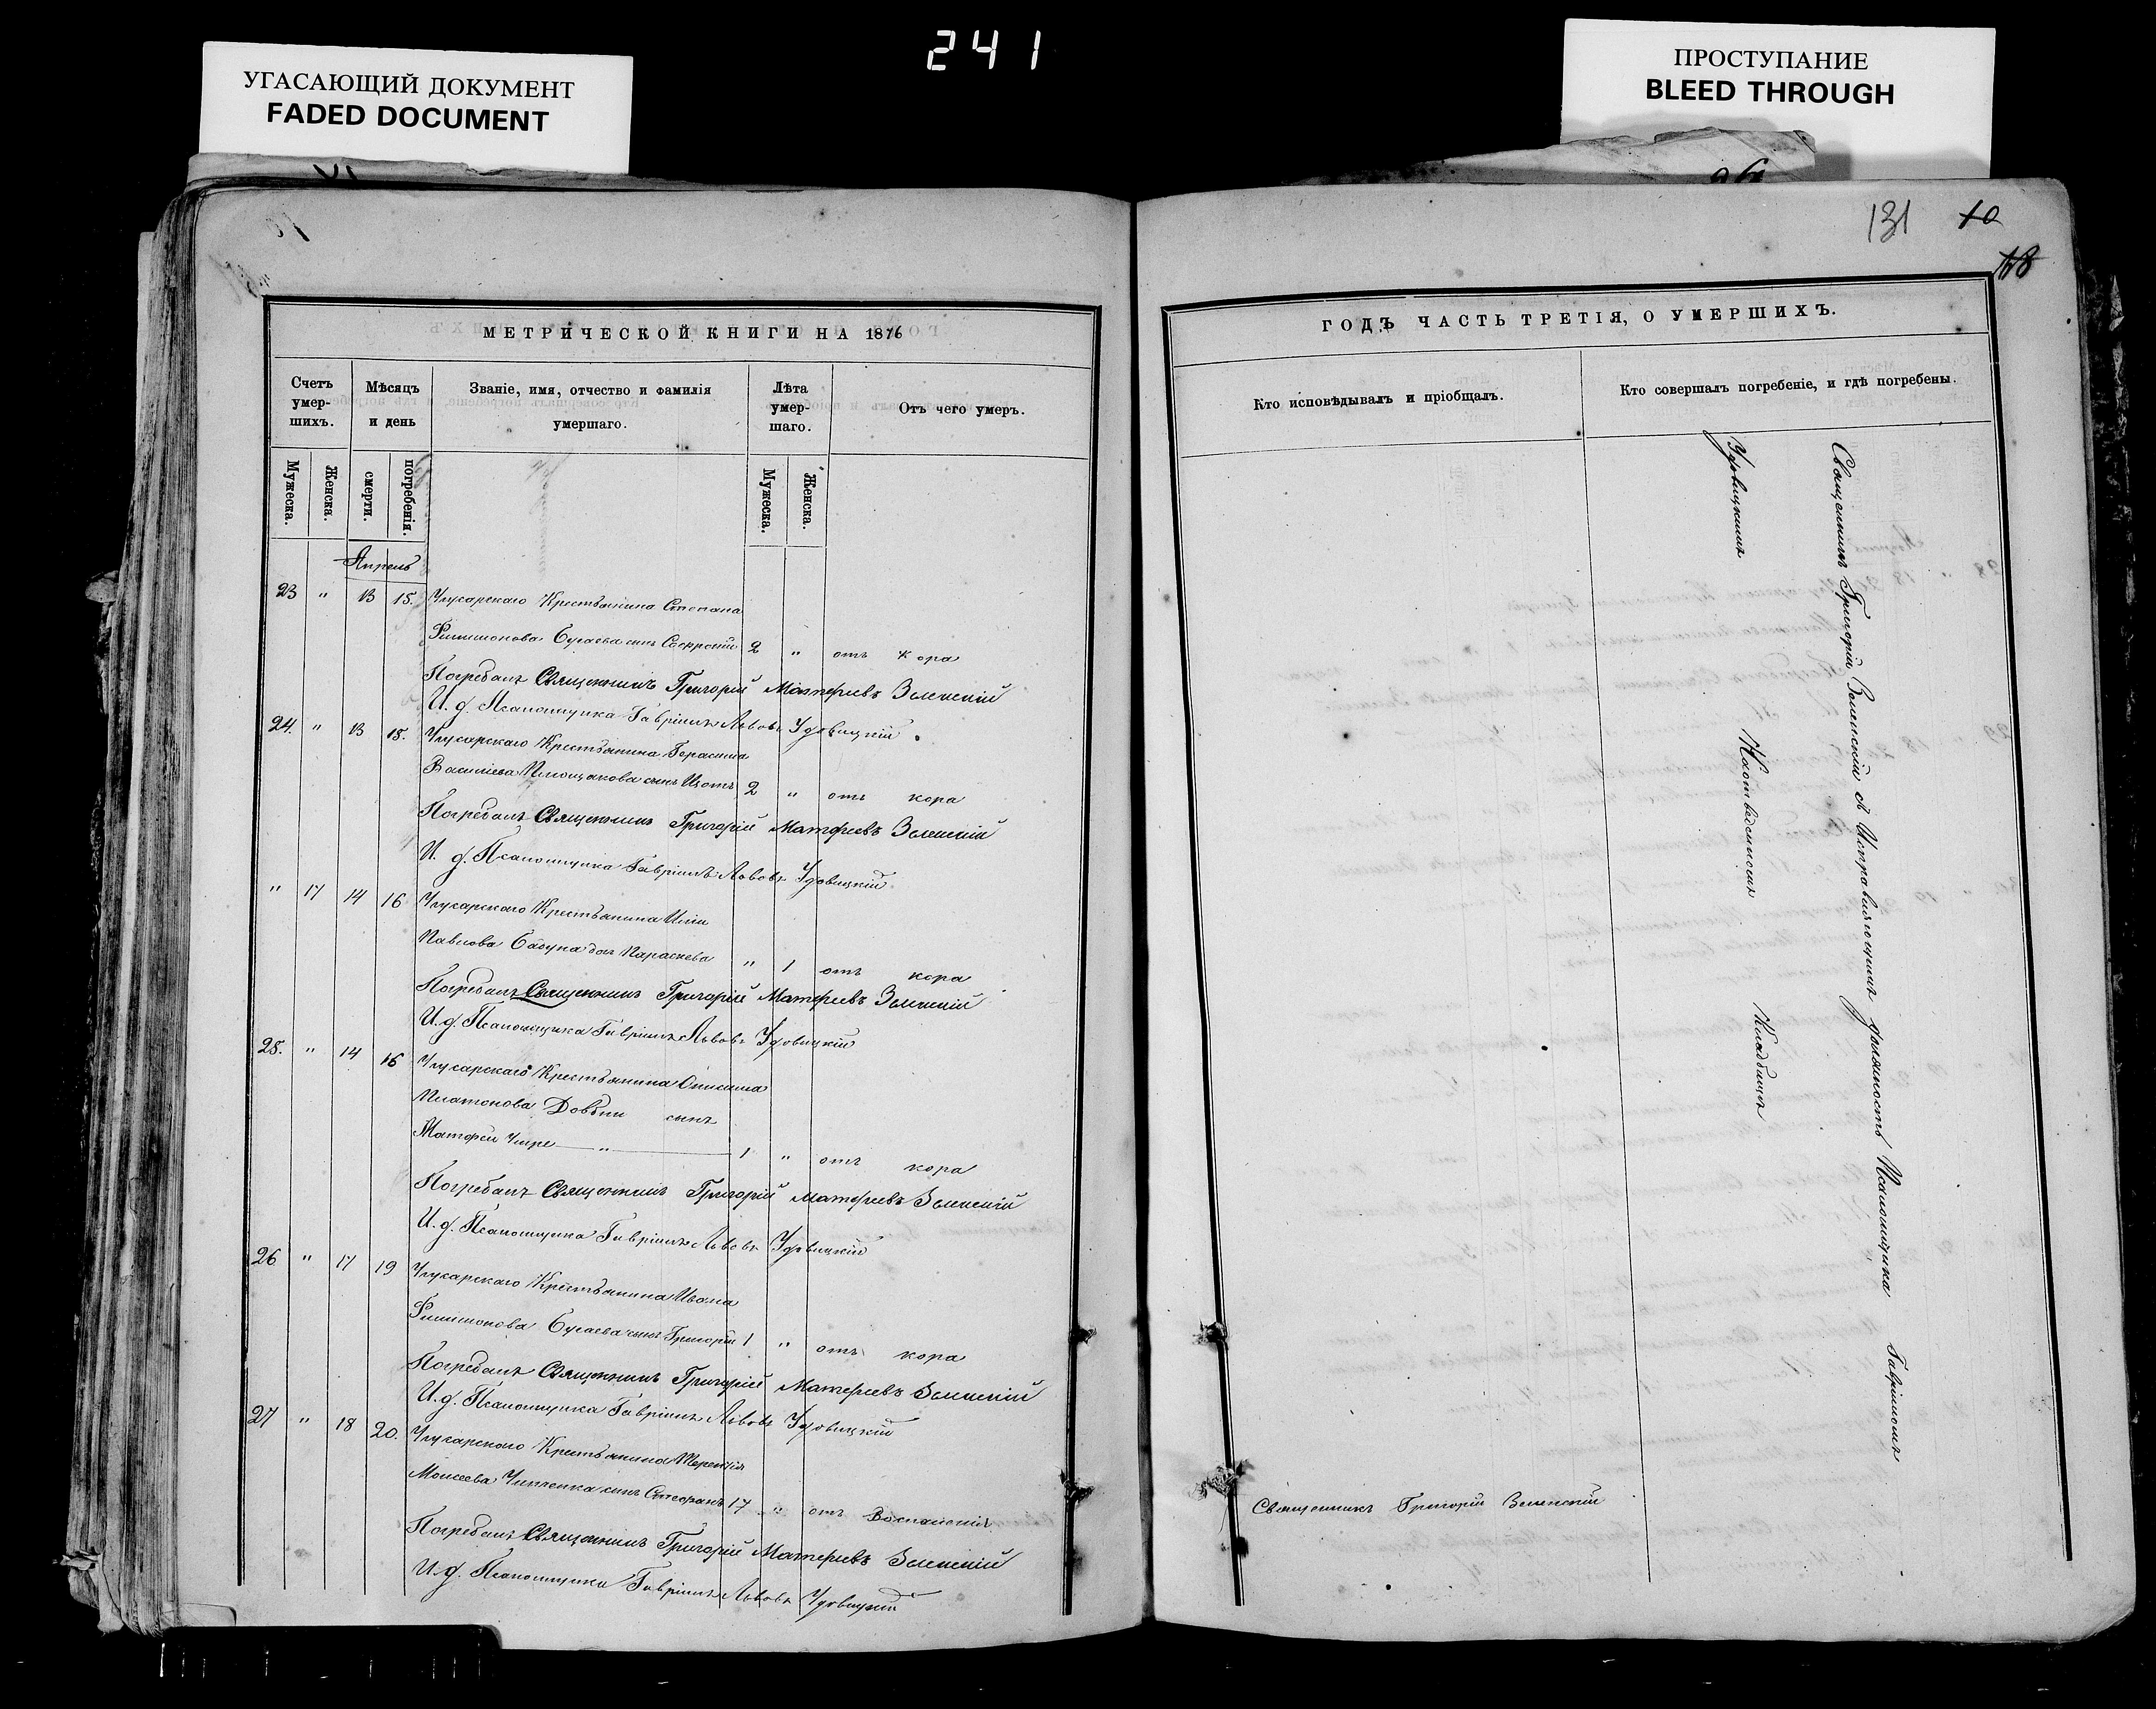 241
УГАСАЮЩИЙ ДОКУМЕНТ
FADED DOCUMENT
ПРОСТУПАНИЕ
BLEED THROUGH
131 10
МЕТРИЧЕСКОЙ КНИГИ НА 1876
Счетъ умер-шихъ.
Мѣсяцъ и день
Званіе, имя, отчество и фамилія умершаго.
Лѣта умер-шаго.
Отъ чего умеръ.
Мужеска. Женска. смерти. погребенія. Мужеска. Женска.
Апрель
23 " 13 15. Крестьянина Степана
Филимонова Бугаева сынъ 2 " отъ кора
Погребалъ Священникъ Григорій Матѳеевъ Зеленскій
И. д. Псаломщика Гавріилъ Львовъ Удовицкій
24. " 13 15. Крестьянина Герасима
Василіева сынъ 2 " отъ кора
Погребалъ Священникъ Григорій Матѳеевъ Зеленскій
И. д. Псаломщика Гавріилъ Львовъ Удовицкій
" 17 14 16 Крестьянина Иліи
Павлова дочь Параскева " 1 отъ кора
Погребалъ Священникъ Григорій Матѳеевъ Зеленскій
И. д. Псаломщика Гавріилъ Львовъ Удовицкій
25. " 14 16 Крестьянина
Платонова Довбни сынъ
Матѳей " 1 " отъ кора
Погребалъ Священникъ Григорій Матѳеевъ Зеленскій
И. д. Псаломщика Гавріилъ Львовъ Удовицкій
26 " 17 19 Крестьянина Ивана
Филимонова Бугаева сынъ Григорій 1 " отъ кора
Погребалъ Священникъ Григорій Матѳеевъ Зеленскій
И. д. Псаломщика Гавріилъ Львовъ Удовицкій
27 " 18 20. Крестьянина Терентія
Моисеева сынъ Стефанъ 17 " отъ Воспаленія
Погребалъ Священникъ Григорій Матѳеевъ Зеленскій
И. д. Псаломщика Гавріилъ Львовъ Удовицкій
ГОДЪ ЧАСТЬ ТРЕТІЯ, О УМЕРШИХЪ.
Кто исповѣдывалъ и пріобщалъ.
Кто совершалъ погребеніе, и гдѣ погребены.
Священникъ Григорій Зеленскій
Священникъ Григорій Зеленскій и Исправляющимъ должность Псаломщика Гавріиломъ
Удовицкимъ На отведенномъ Кладбищѣ